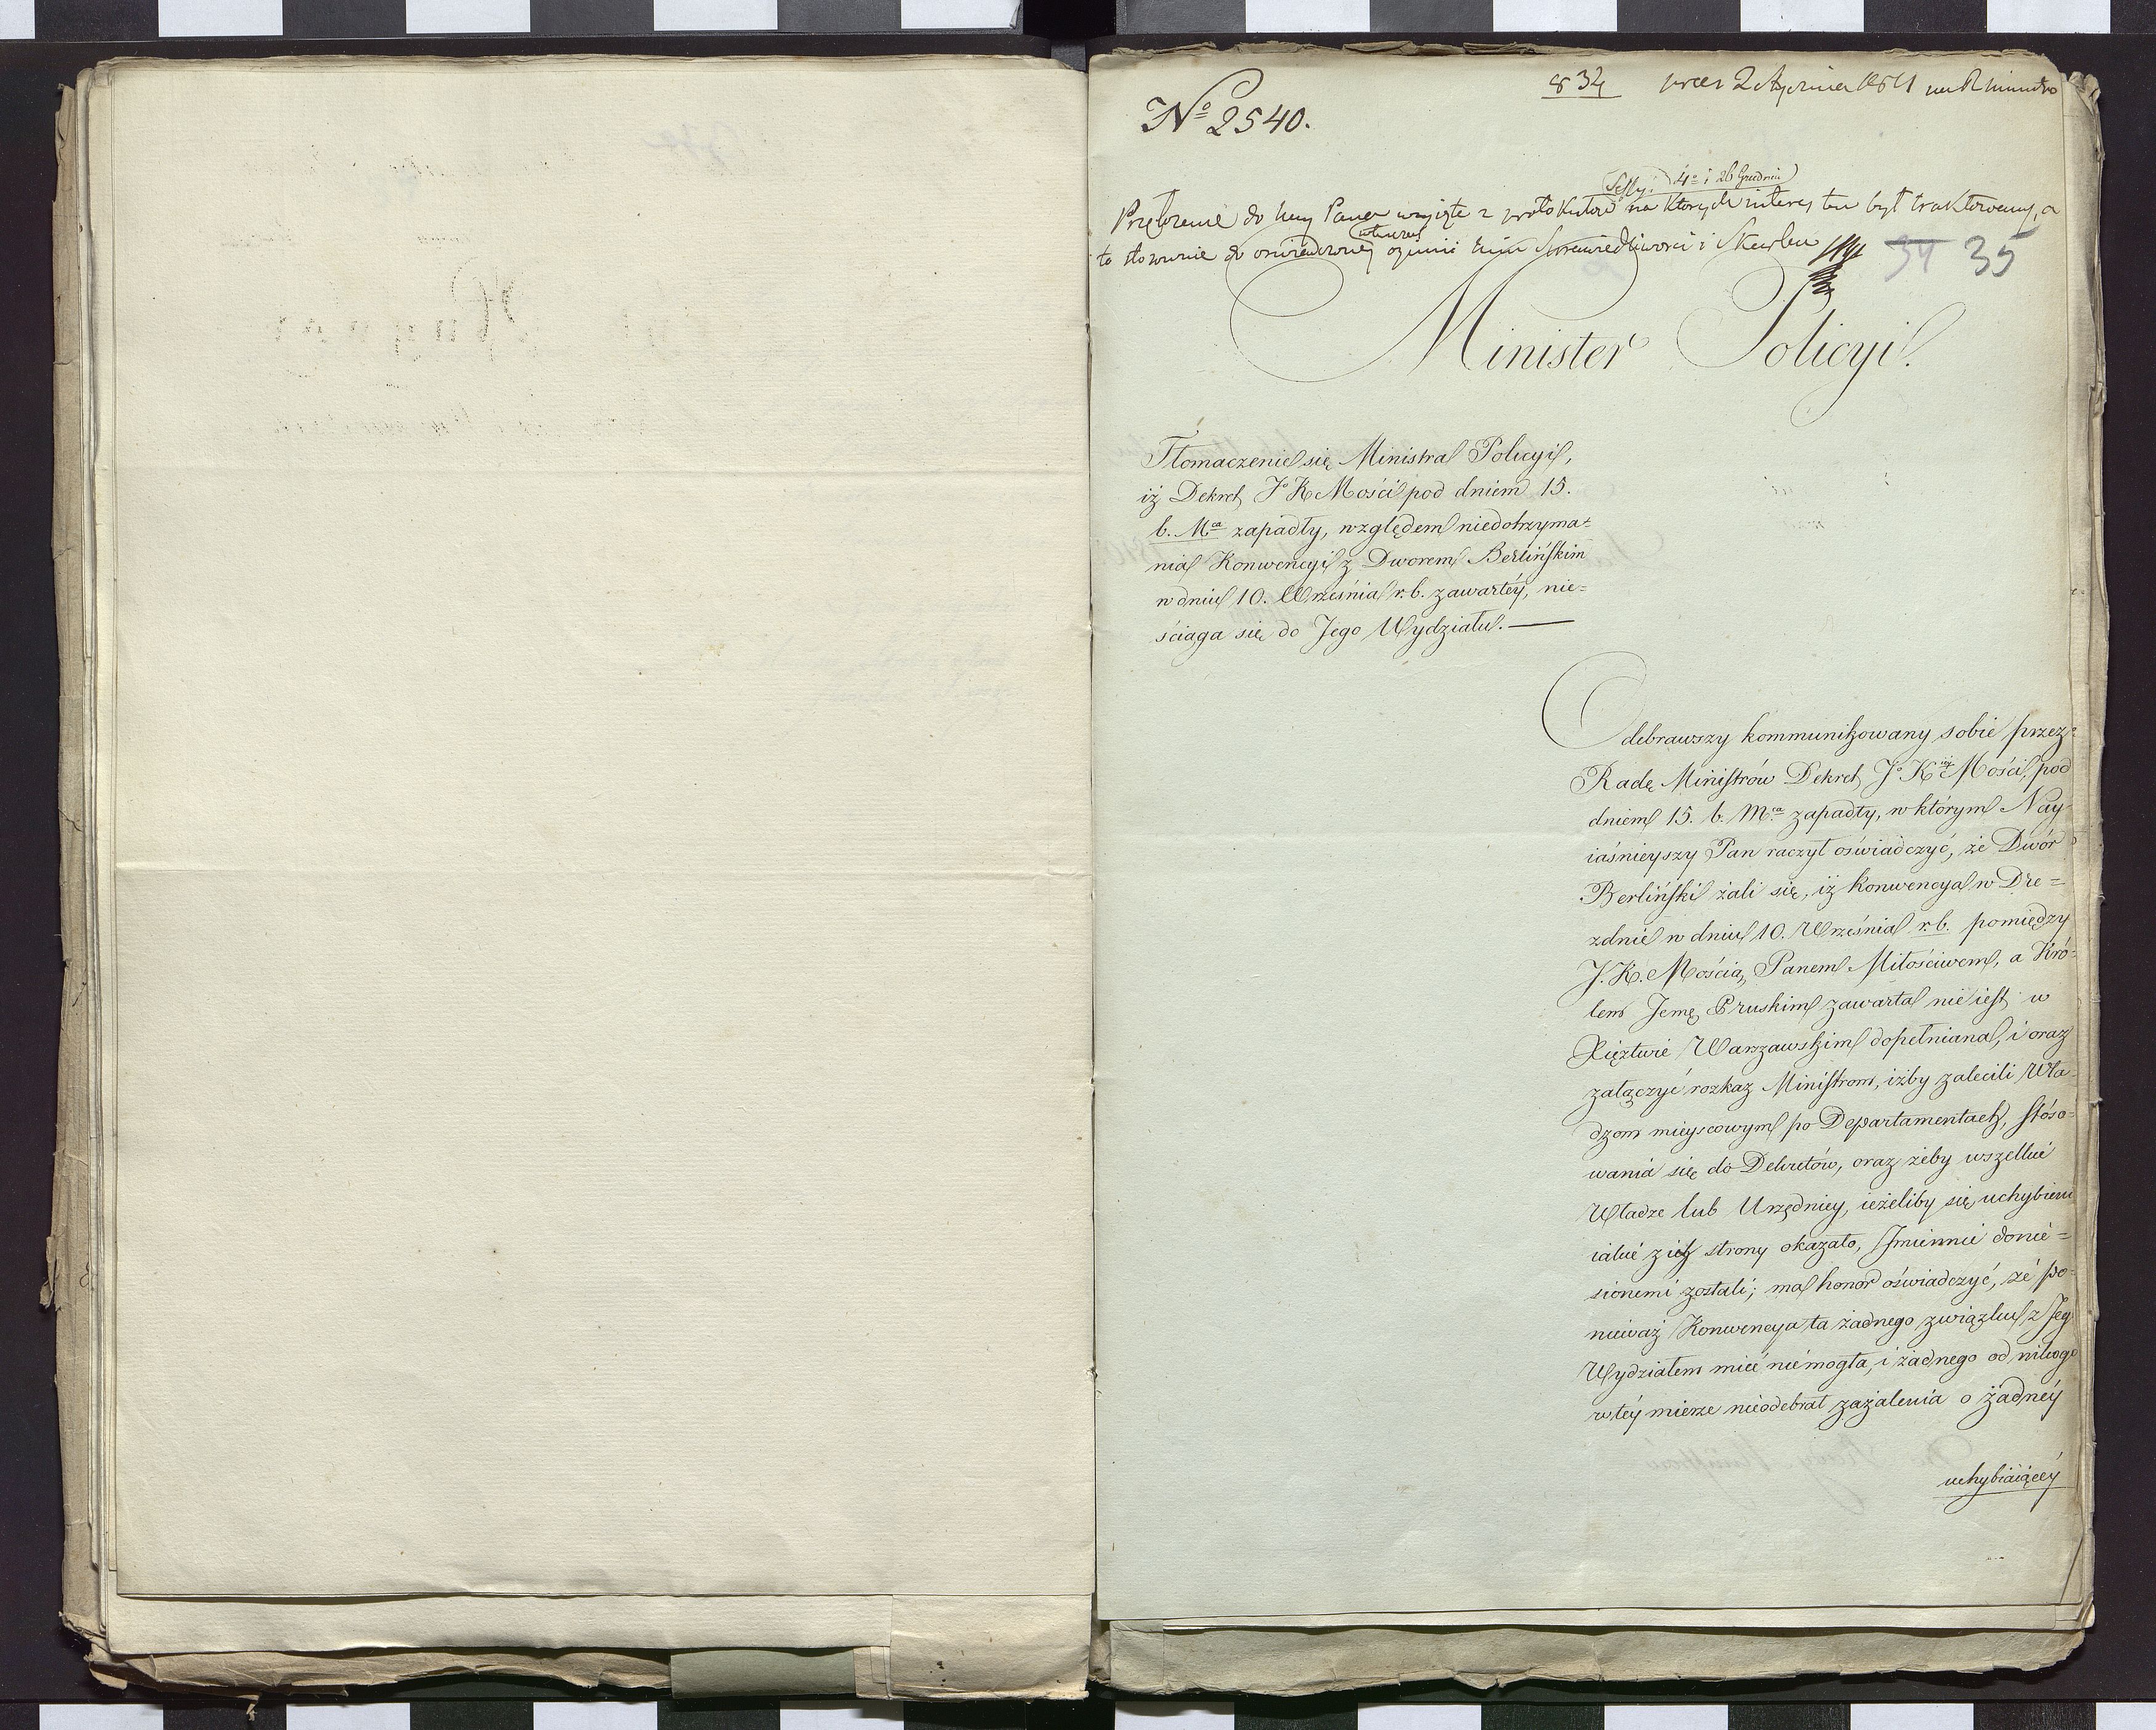 No 2540.
834
Sessyi 4o i 26 Grudnia
Przełożenie do Krey Pana wyięte z protokułów na których interes ten był traktowany, a
to stosownie do opinii Sprawiedliwości i Skarbu
34 35
Minister Policyi.
Tłomaczenie się Ministra Policyi,
iż Dekret Jo K Mości pod dniem 15.
b. Mca zapadły, względem niedotrzyma=
nia Konwencyi z Dworem Berlińskim
w dniu 10. Września r. b. zawartéy, nie=
ściąga się do Jego Wydziału. —
Odebrawszy kommunikowany sobie przez
Radę Ministrów Dekret Jo Kiéy Mości, pod
dniem 15. b. Mca zapadły, w którym Nay=
iaśnieyszy Pan raczył oświadczyć, że Dwór
Berliński żali się, iż konwencya w Dre=
zdnie w dniu 10. Września r. b. pomiędzy
J. K. Mością, Panem Miłościwem, a Kró=
lem Jemę Pruskim zawarta nie iest w
Xięztwie Warszawskim dopełniana, i oraz
załączyć rozkaz Ministrom, iżby zalecili Wła=
dzom mieyscowym po Departamentach, stóso=
wania się do Dekretów, oraz żeby wszelkie
Władze lub Urzędnicy, ieżeliby się uchybienie
iakie z ich strony okazało, Jmiennie donie=
sionemi zostali; ma honor oświadczyć, że po=
nieważ Konwencya ta żadnego związku z Jego
Wydziałem mieć niemogła, i żadnego od nikogo
w téy mierze nieodebrał zażalenia o żadnéy
uchybiaiącéy